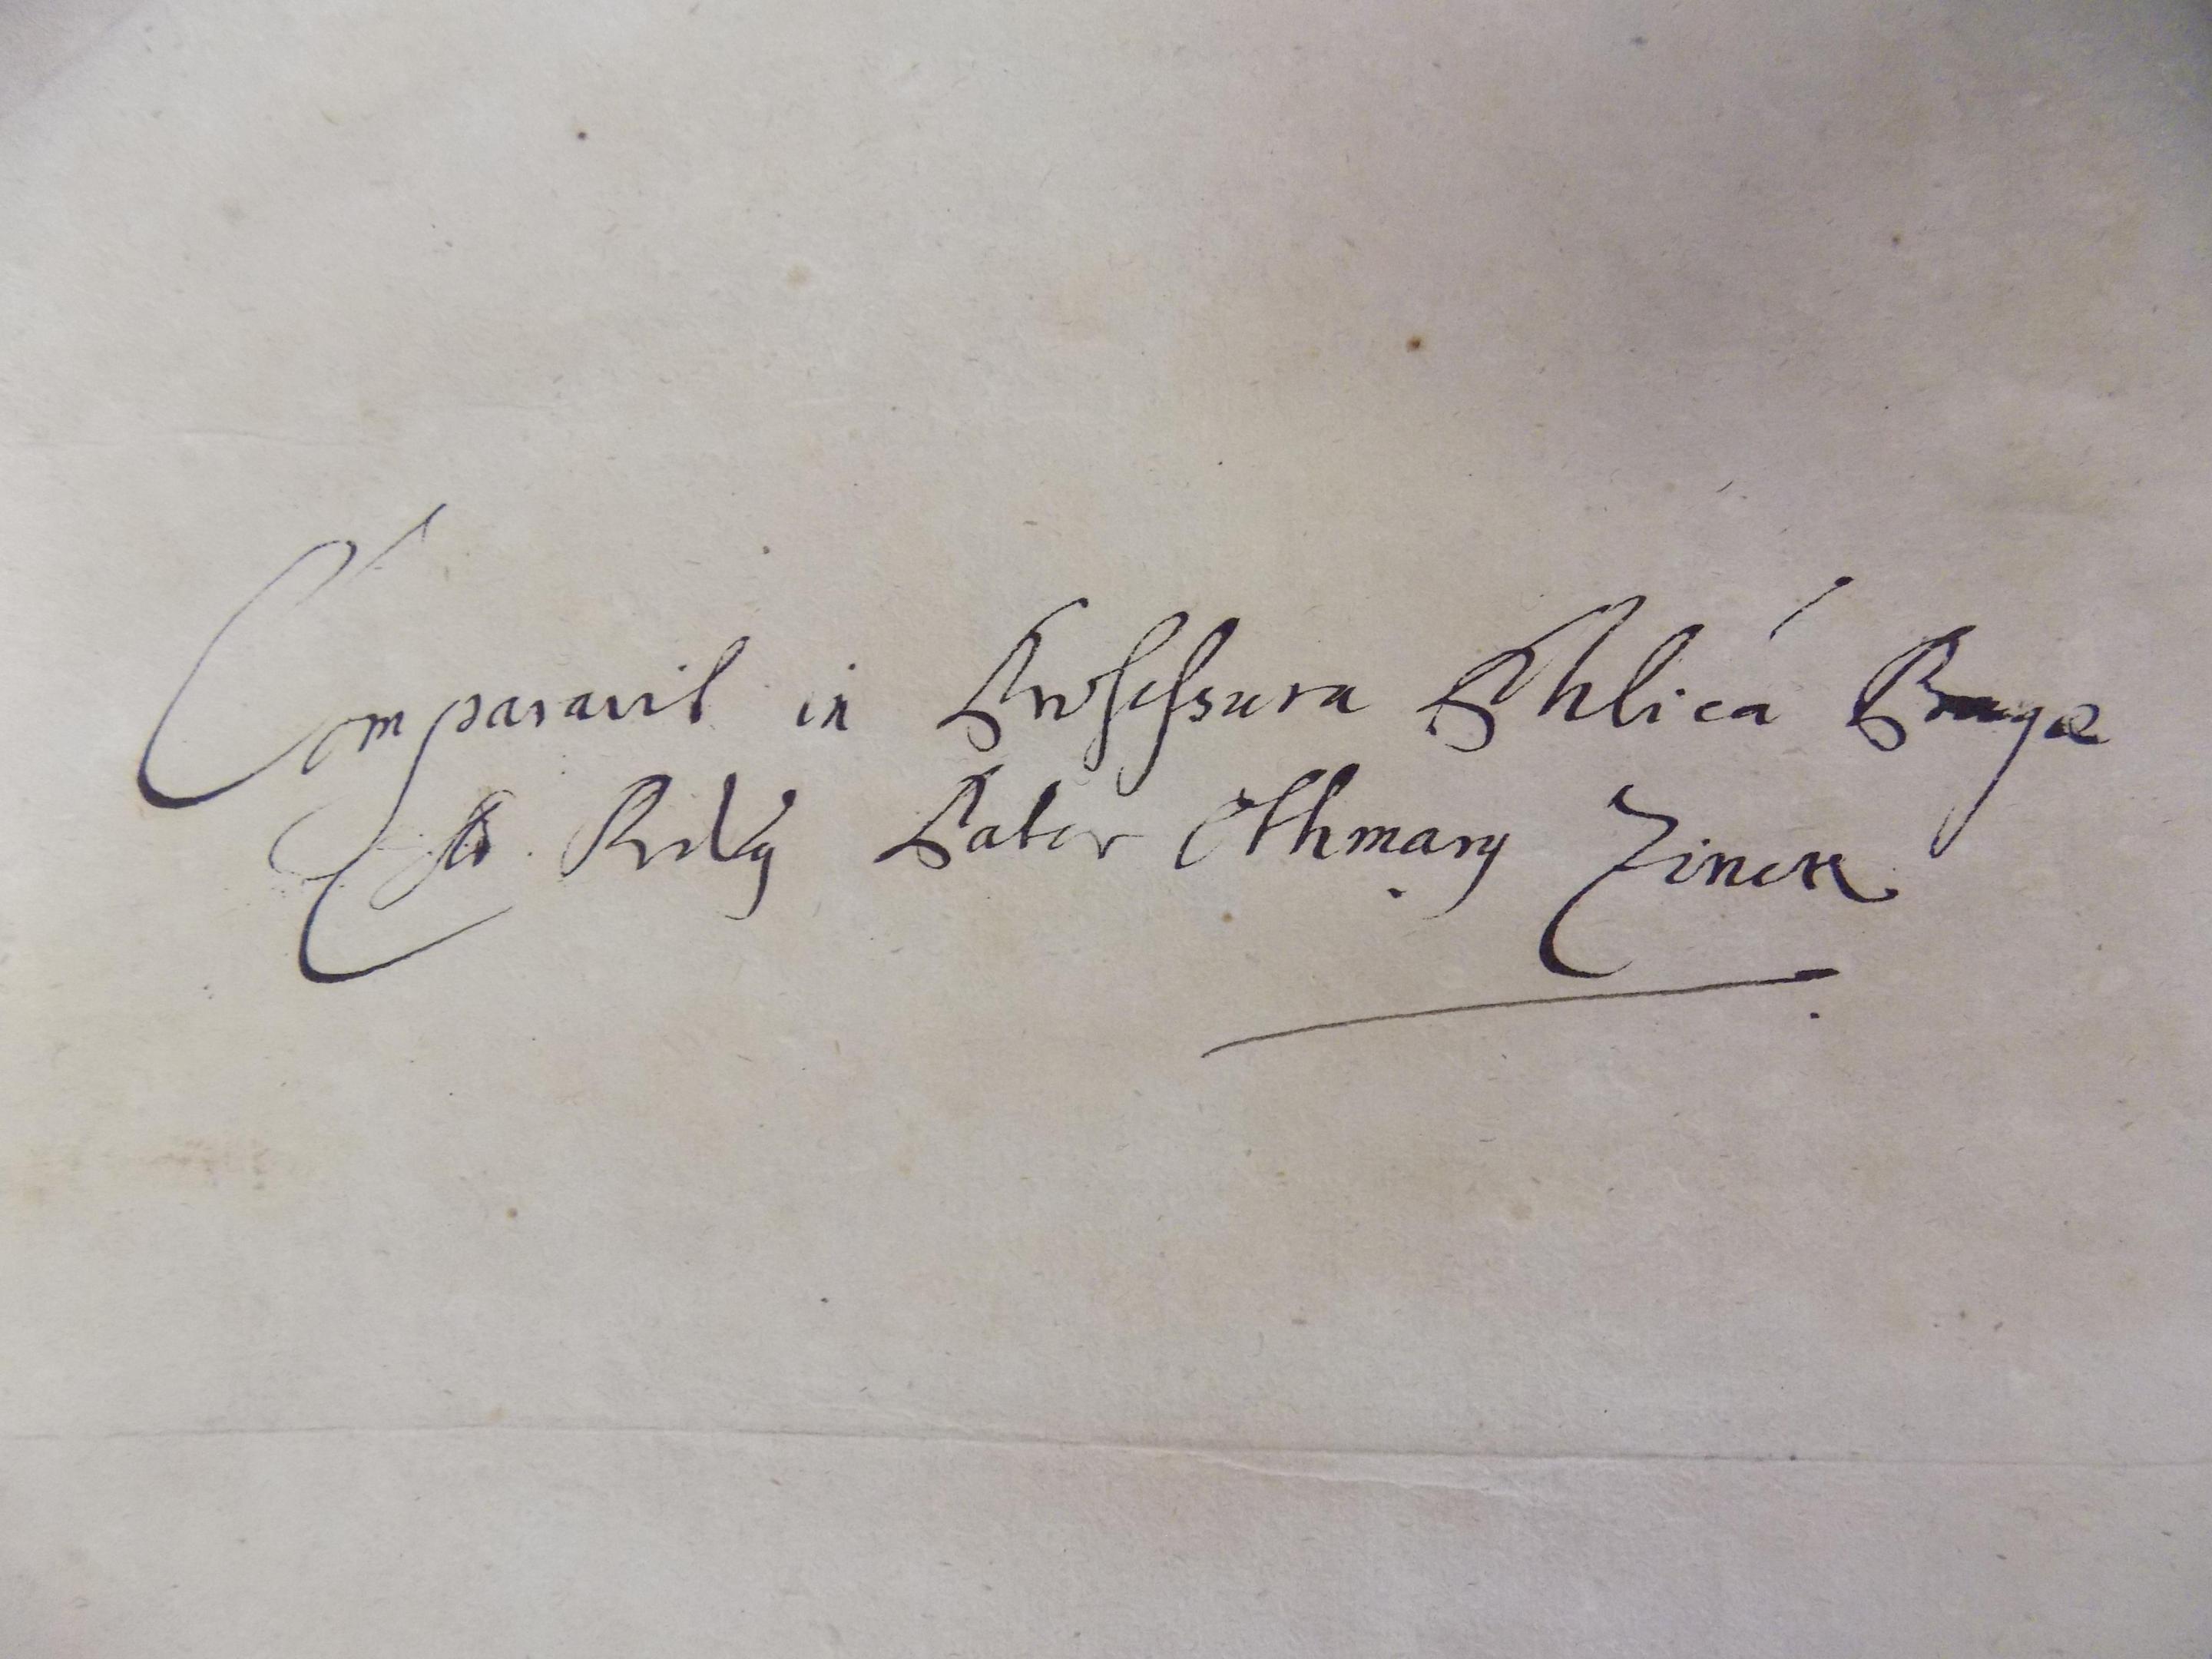 Comparavit in Professura Pblicâ Pragæ
A. Rndꝰ Pater Othmarꝰ Zincke